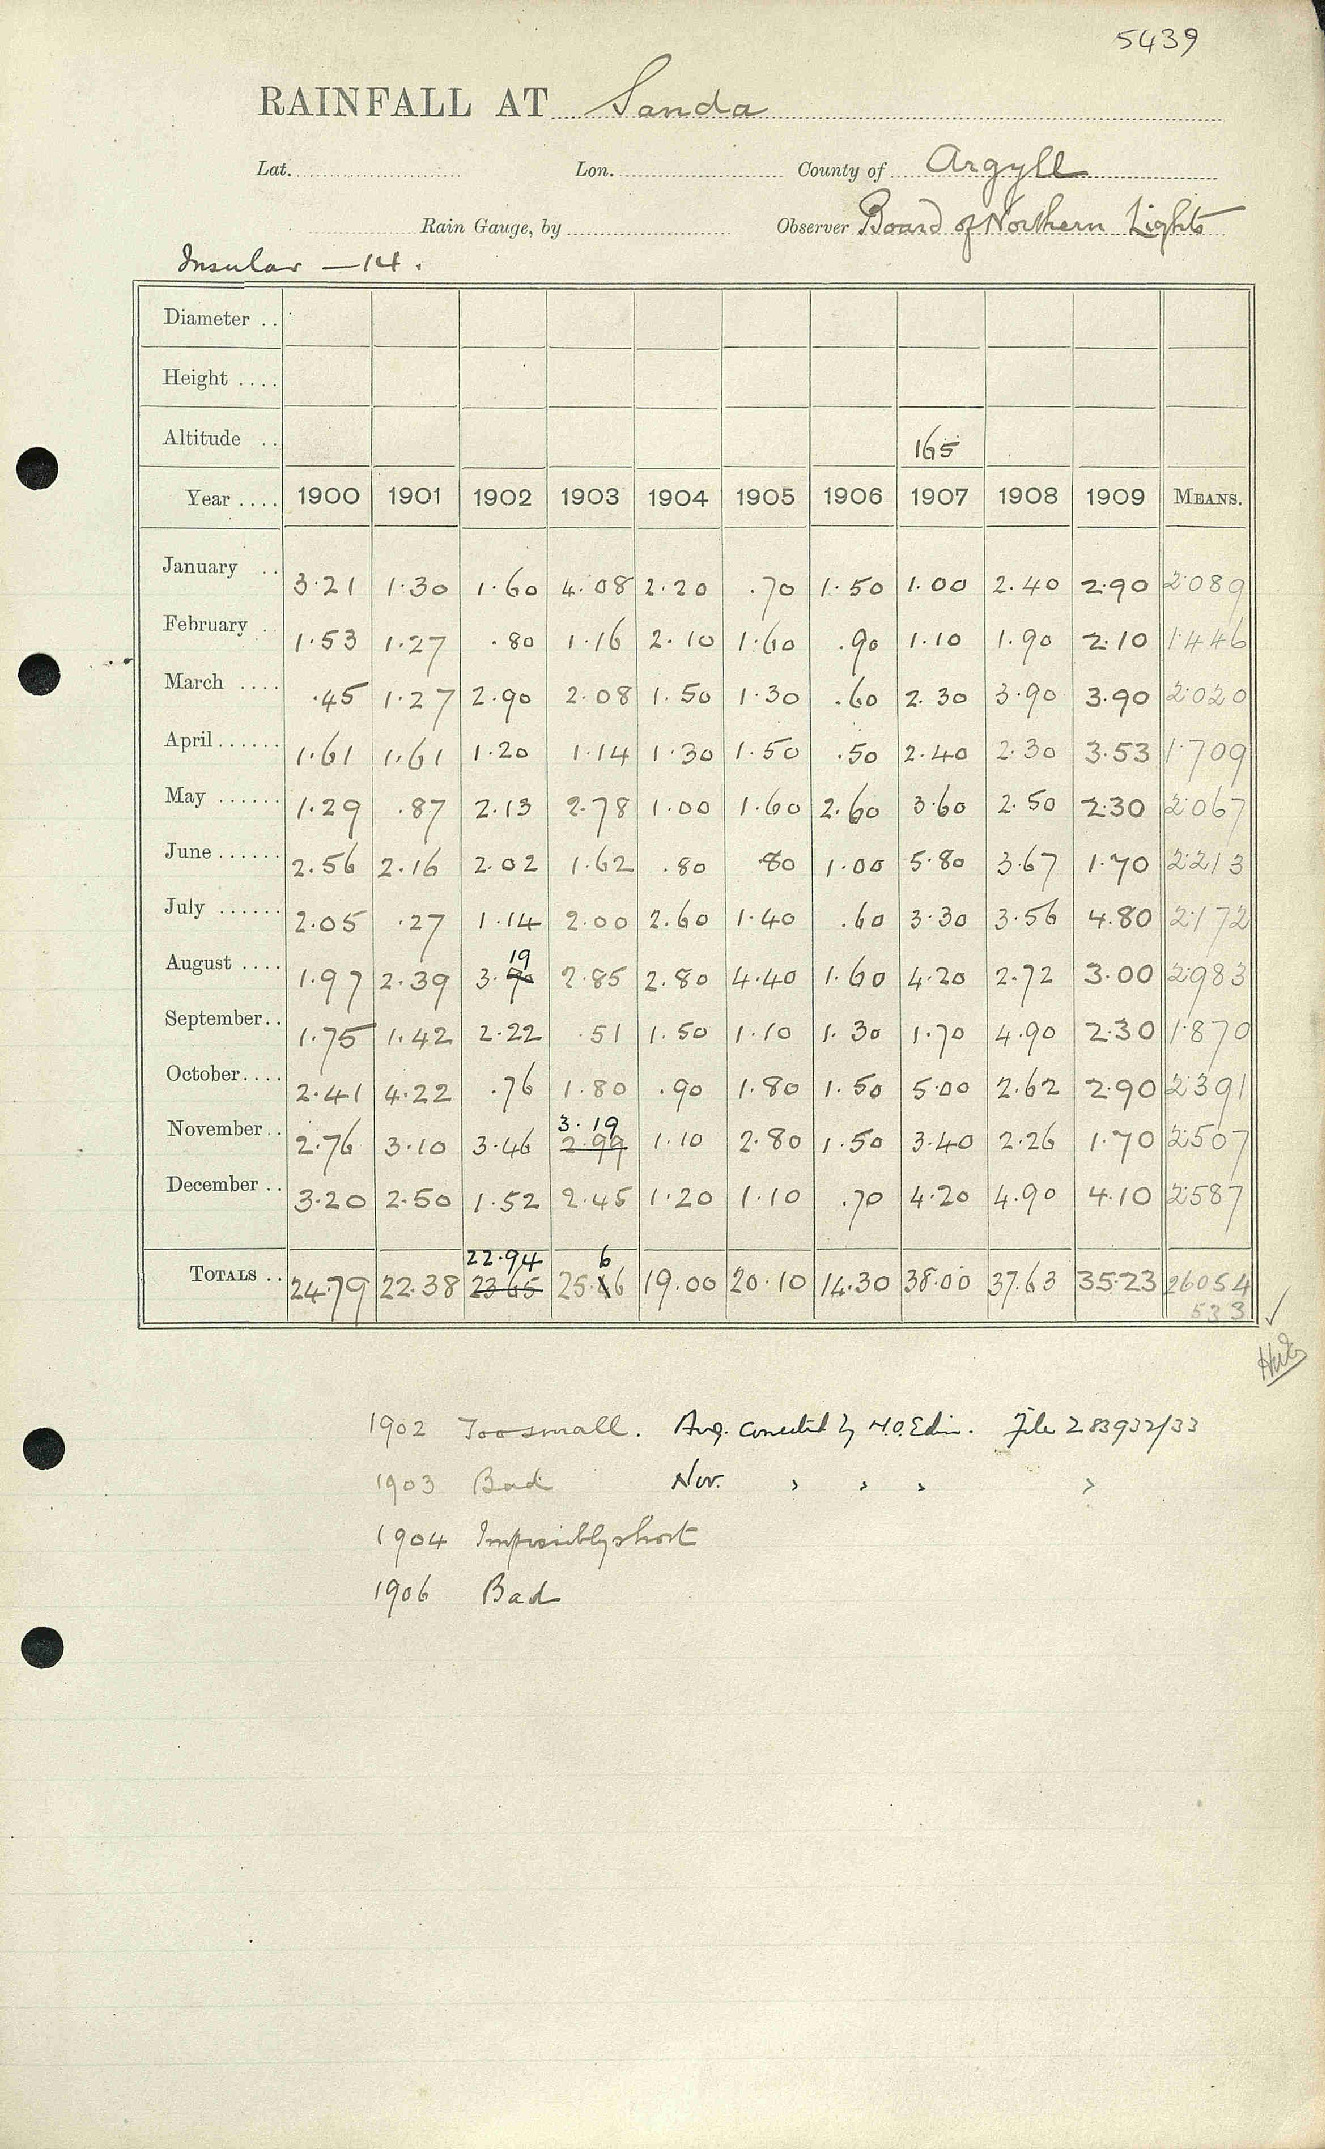 5439
RAINFALL AT Sanda
Lat. Lon. County of Argyll
Rain Gauge, by Observer Board of Northern Lights
Insular — 14.
Diameter ..
Height ....
Altitude .. 165
Year .... 1900 1901 1902 1903 1904 1905 1906 1907 1908 1909 MEANS.
January .. 3.21 1.30 1.60 4.08 2.20 .70 1.50 1.00 2.40 2.90 2.089
February . 1.53 1.27 .80 1.16 2.10 1.60 .90 1.10 1.90 2.10 1.446
March .... .45 1.27 2.90 2.08 1.50 1.30 .60 2.30 3.90 3.90 2.020
April...... 1.61 1.61 1.20 1.14 1.30 1.50 .50 2.40 2.30 3.53 1.709
May ...... 1.29 .87 2.13 2.78 1.00 1.60 2.60 3.60 2.50 2.30 2.067
June...... 2.56 2.16 2.02 1.62 .80 .80 1.00 5.80 3.67 1.70 2.213
July ...... 2.05 .27 1.14 2.00 2.60 1.40 .60 3.30 3.56 4.80 2.172
19
August .... 1.97 2.39 3.90 2.85 2.80 4.40 1.60 4.20 2.72 3.00 2.983
September.. 1.75 1.42 2.22 .51 1.50 1.10 1.30 1.70 4.90 2.30 1.870
October.... 2.41 4.22 .76 1.80 .90 1.80 1.50 5.00 2.62 2.90 2.391
3.19
November.. 2.76 3.10 3.46 2.99 1.10 2.80 1.50 3.40 2.26 1.70 2.507
December .. 3.20 2.50 1.52 2.45 1.20 1.10 .70 4.20 4.90 4.10 2.587
22.94 6
TOTALS .. 24.79 22.38 23.65 25.46 19.00 20.10 14.30 38.00 37.63 35.23 26054
533
1902 Too small. Aug. corrected by M.O. Edin. File 283932/33
1903 Bad Nov. " " " "
1904 Impossibly short
1906 Bad